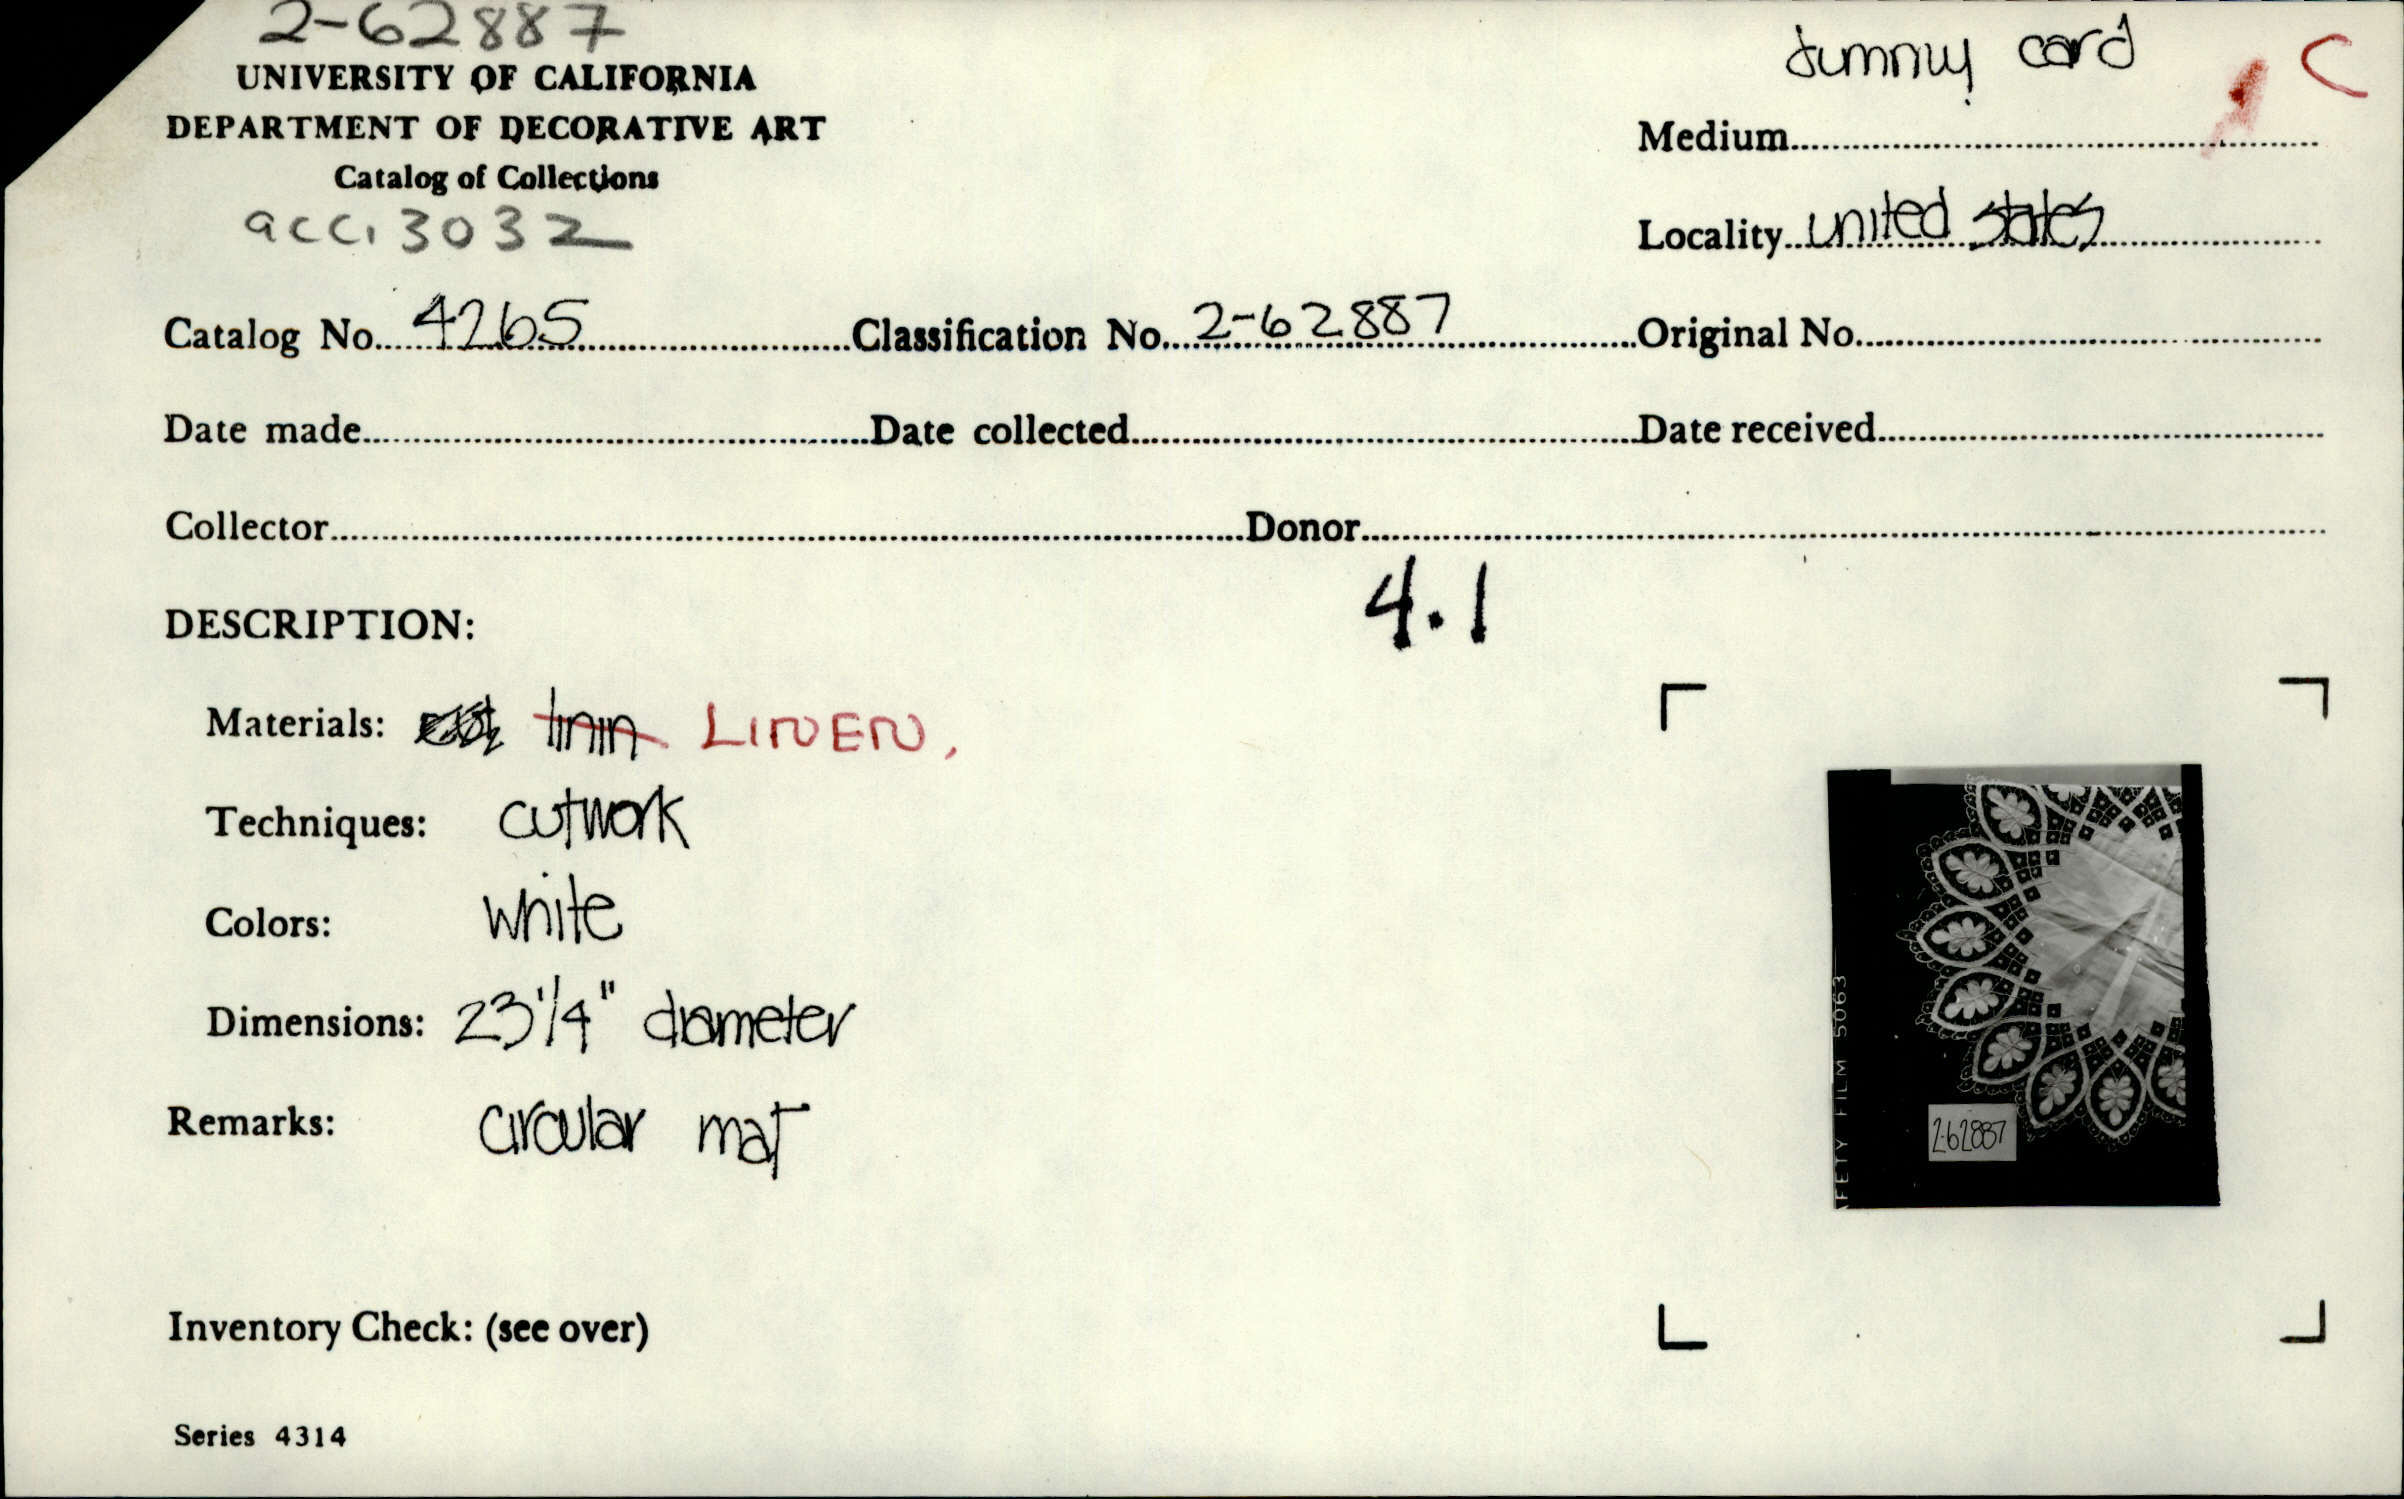 2-62887
UNIVERSITY OF CALIFORNIA
DEPARTMENT OF DECORATIVE ART
Catalog of Collections
acc. 3032
dummy card
C
Medium
Locality united states
Catalog No. 4265 Classification No. 2-62887 Original No.
Date made Date collected Date received
Collector Donor
4.1
DESCRIPTION:
Materials: linin LINEN,
Techniques: cutwork
Colors: white
Dimensions: 23 1/4" diameter
Remarks: circular mat
FETY FILM 5063
2-62887
Inventory Check: (see over)
Series 4314